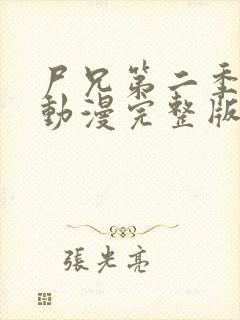 尸兄第二季
動漫完整版
張光亮